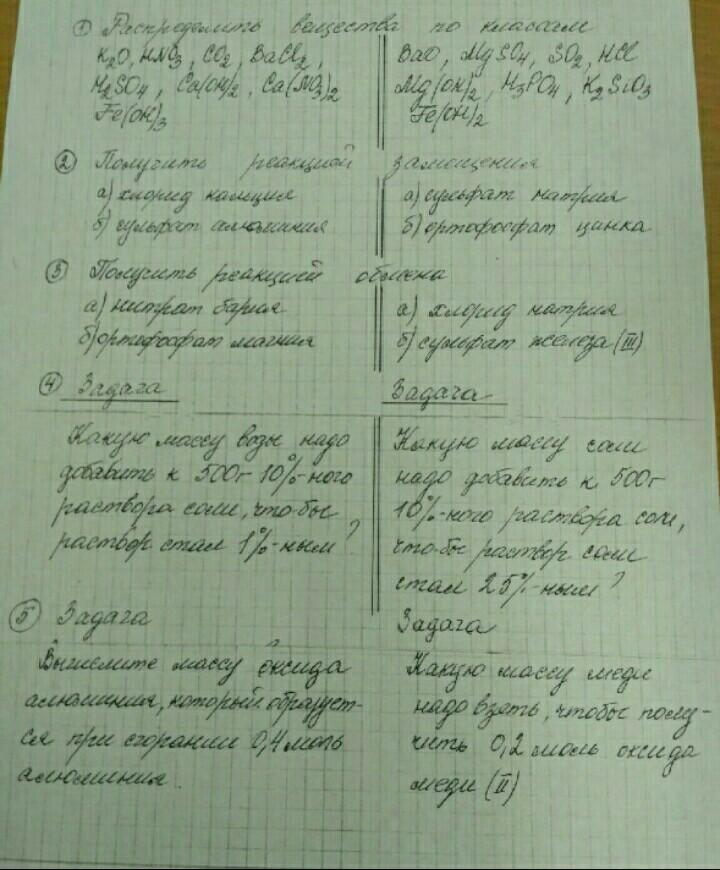 ① Распределить вещества по классам
K₂O, HNO₃, CO₂, BaCl₂,
H₂SO₄, Ca(OH)₂, Ca(NO₃)₂
Fe(OH)₃
BaO, MgSO₄, SO₂, HCl
Mg(OH)₂, H₃PO₄, K₂SiO₃
Fe(OH)₂
② Получить реакцией замещения
а) хлорид кальция
б) сульфат алюминия
а) сульфат натрия
б) ортофосфат цинка
③ Получить реакцией обмена
а) нитрат бария
б) ортофосфат магния
а) хлорид натрия
б) сульфат железа (III)
④ Задача
Какую массу воды надо
добавить к 500г 10%-ного
раствора соли, что-бы
раствор стал 1%-ным?
Задача
Какую массу соли
надо добавить к 500г
10%-ного раствора соли,
что-бы раствор соли
стал 25%-ным?
⑤ Задача
Вычислите массу оксида
алюминия, который образует-
ся при сгорании 0,4 моль
алюминия.
Задача
Какую массу меди
надо взять, чтобы полу-
чить 0,2 моль оксида
меди (II)